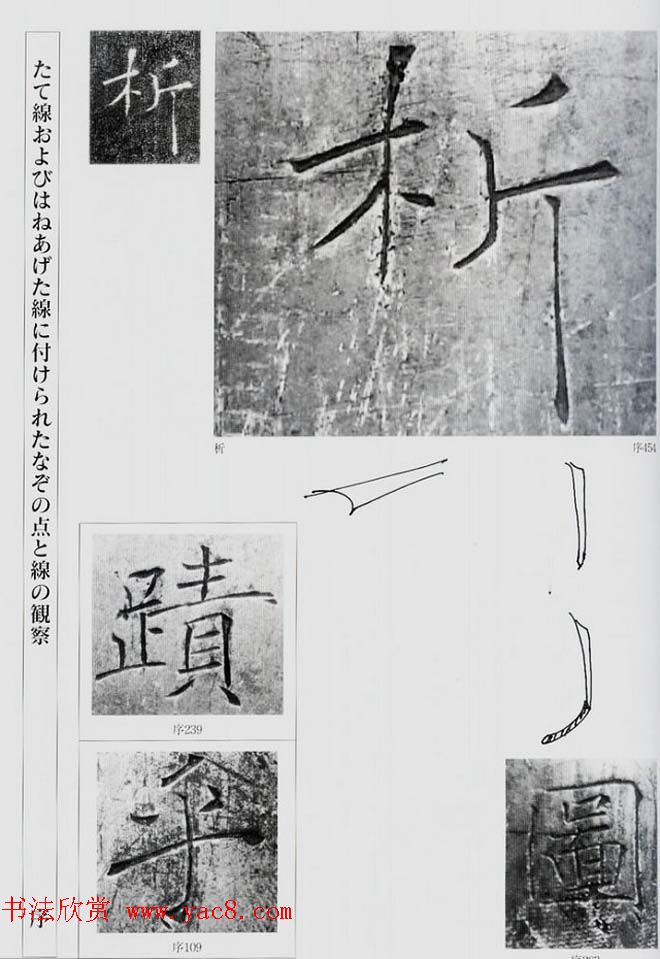 たて線およびはねあげた線に付けられたなぞの点と線の観察
序
析
析
析
序454
蹟
序239
序109
圖
书法欣赏 www.yac8.com